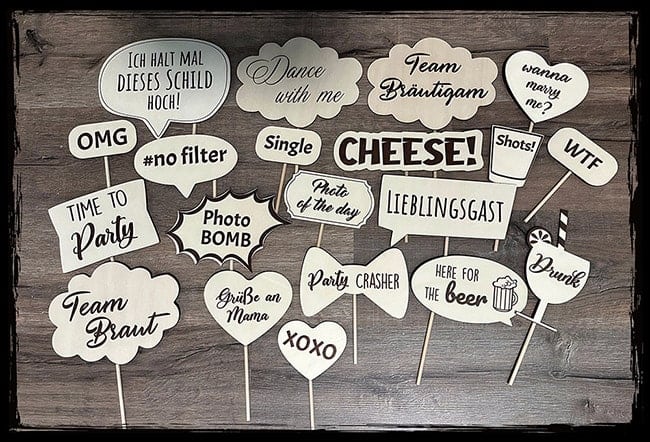 Ich halt mal
dieses Schild
hoch!
Dance
with me
Team
Bräutigam
wanna
marry
me?
OMG
#no filter
Single
CHEESE!
Shots!
WTF
TIME TO
Party
Photo
BOMB
Photo
of the day
LIEBLINGSGAST
Drunk
Team
Braut
Grüße an
Mama
Party CRASHER
HERE FOR
THE beer
XOXO